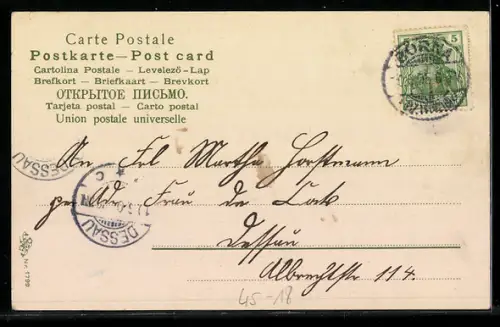 Carte Postale
Postkarte — Post card
Cartolina Postale — Levelező-Lap
Brefkort — Briefkaart — Brevkort
ОТКРЫТОЕ ПИСЬМО.
Tarjeta postal — Carto postal
Union postale universelle
5
DESSAU
An Frl Martha Horstmann
per Adr Frau de
DESSAU
* C
Dessau
Albrechtstr 114.
45-18